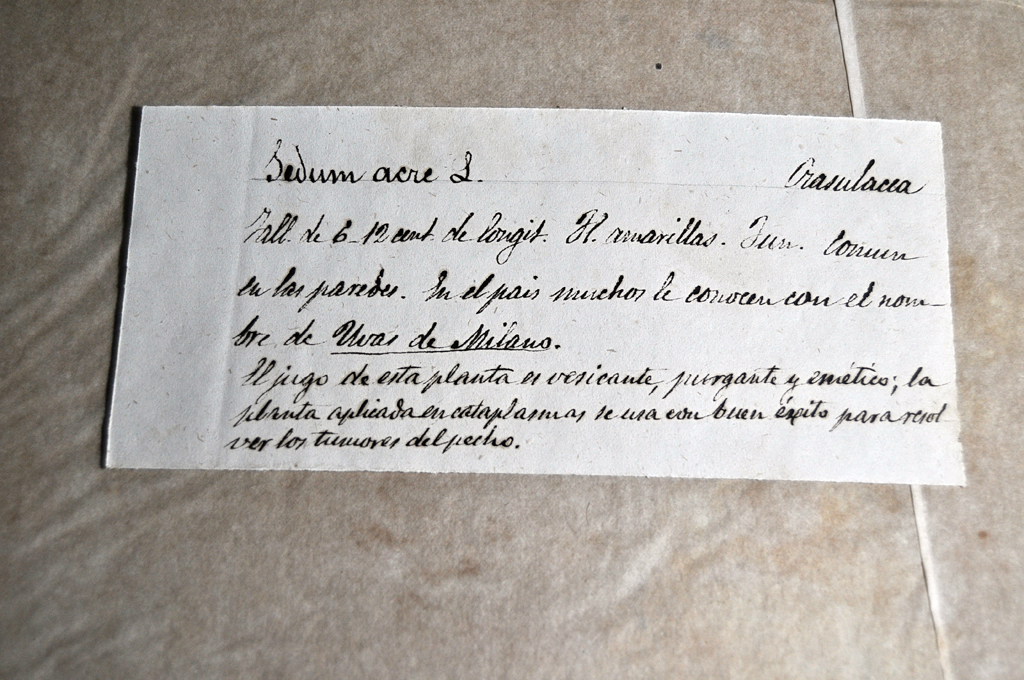 Sedum acre L. Crasulacea
Tall. de 6-12 cent. de longit. Fl. amarillas. Jun. Comun
en las paredes. En el pais muchos le conocen con el nom-
bre de Uvas de Milano.
El jugo de esta planta es vesicante, purgante y emético; la
planta aplicada en cataplasmas se usa con buen éxito para resol
ver los tumores del pecho.